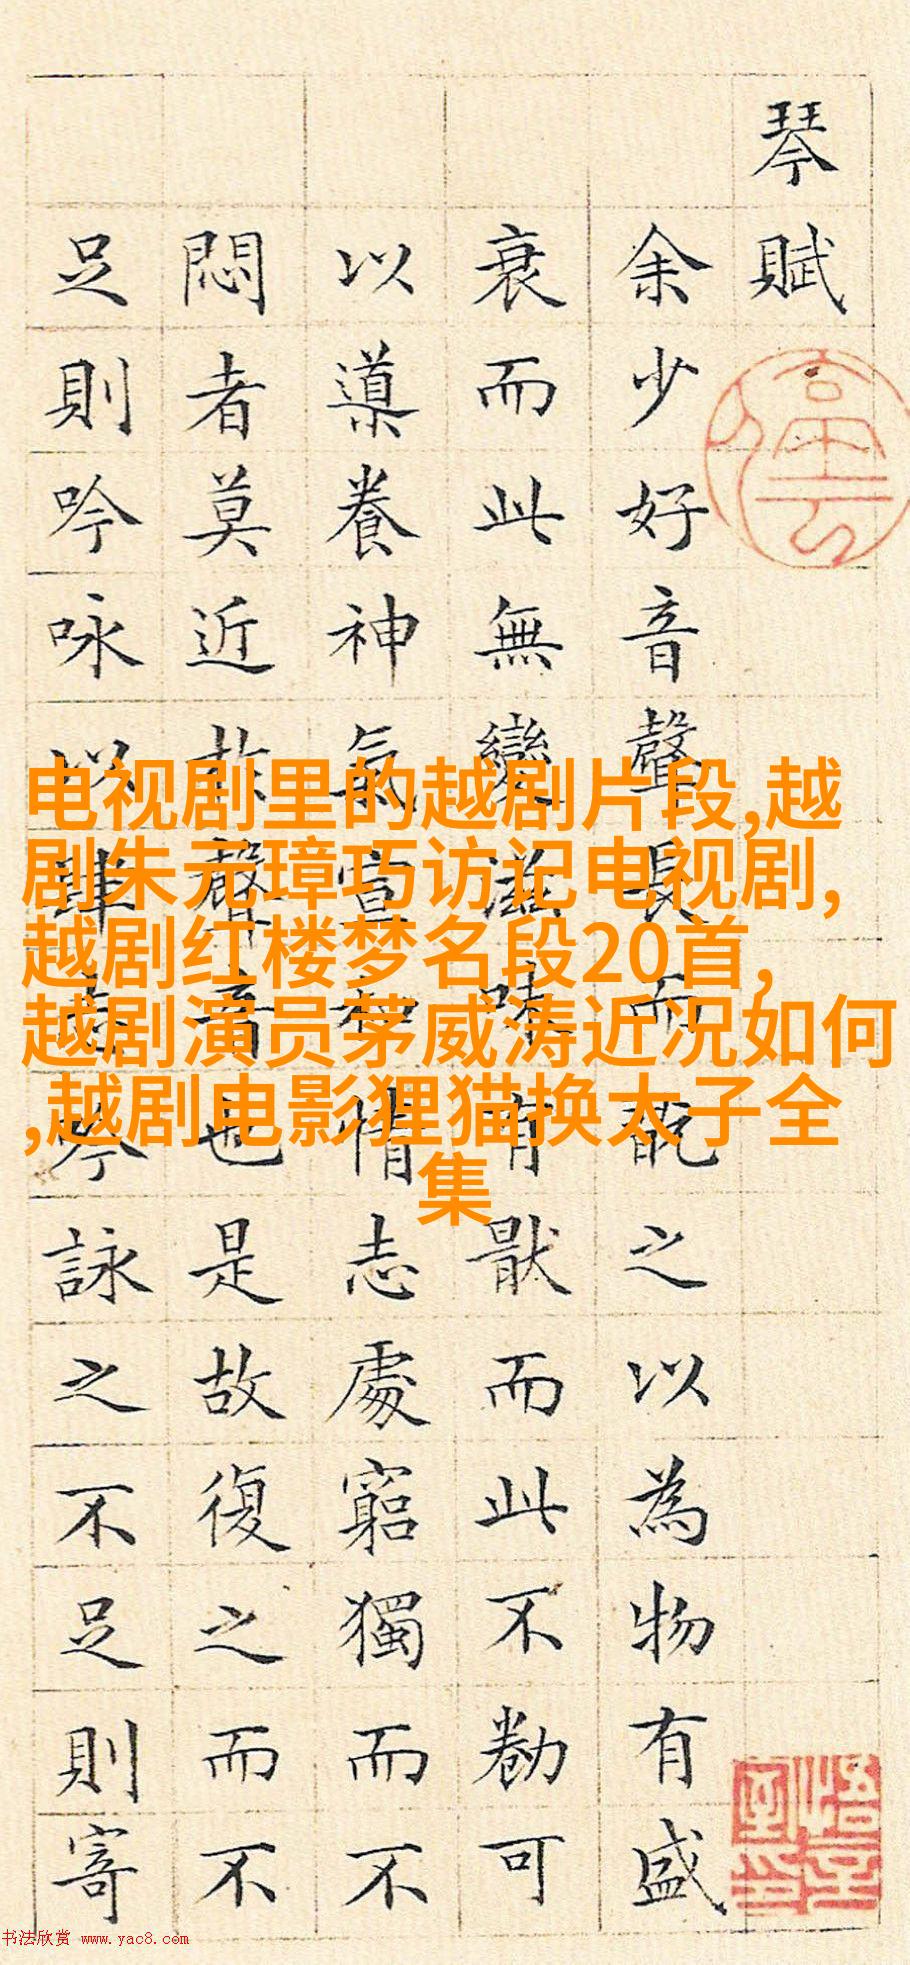 琴賦
余少好音聲長而翫之以為物有盛
衰而此無變滋味有猒而此不勌可
以導養神氣宣和情志處窮獨而不
悶者莫近於聲音也是故復之而不
足則吟咏以肆志吟詠之不足則寄
停云
悟言室印
电视剧里的越剧片段,越
剧朱元璋巧访记电视剧,
越剧红楼梦名段20首,
越剧演员茅威涛近况如何
,越剧电影狸猫换太子全
集
书法欣赏 www.yac8.com